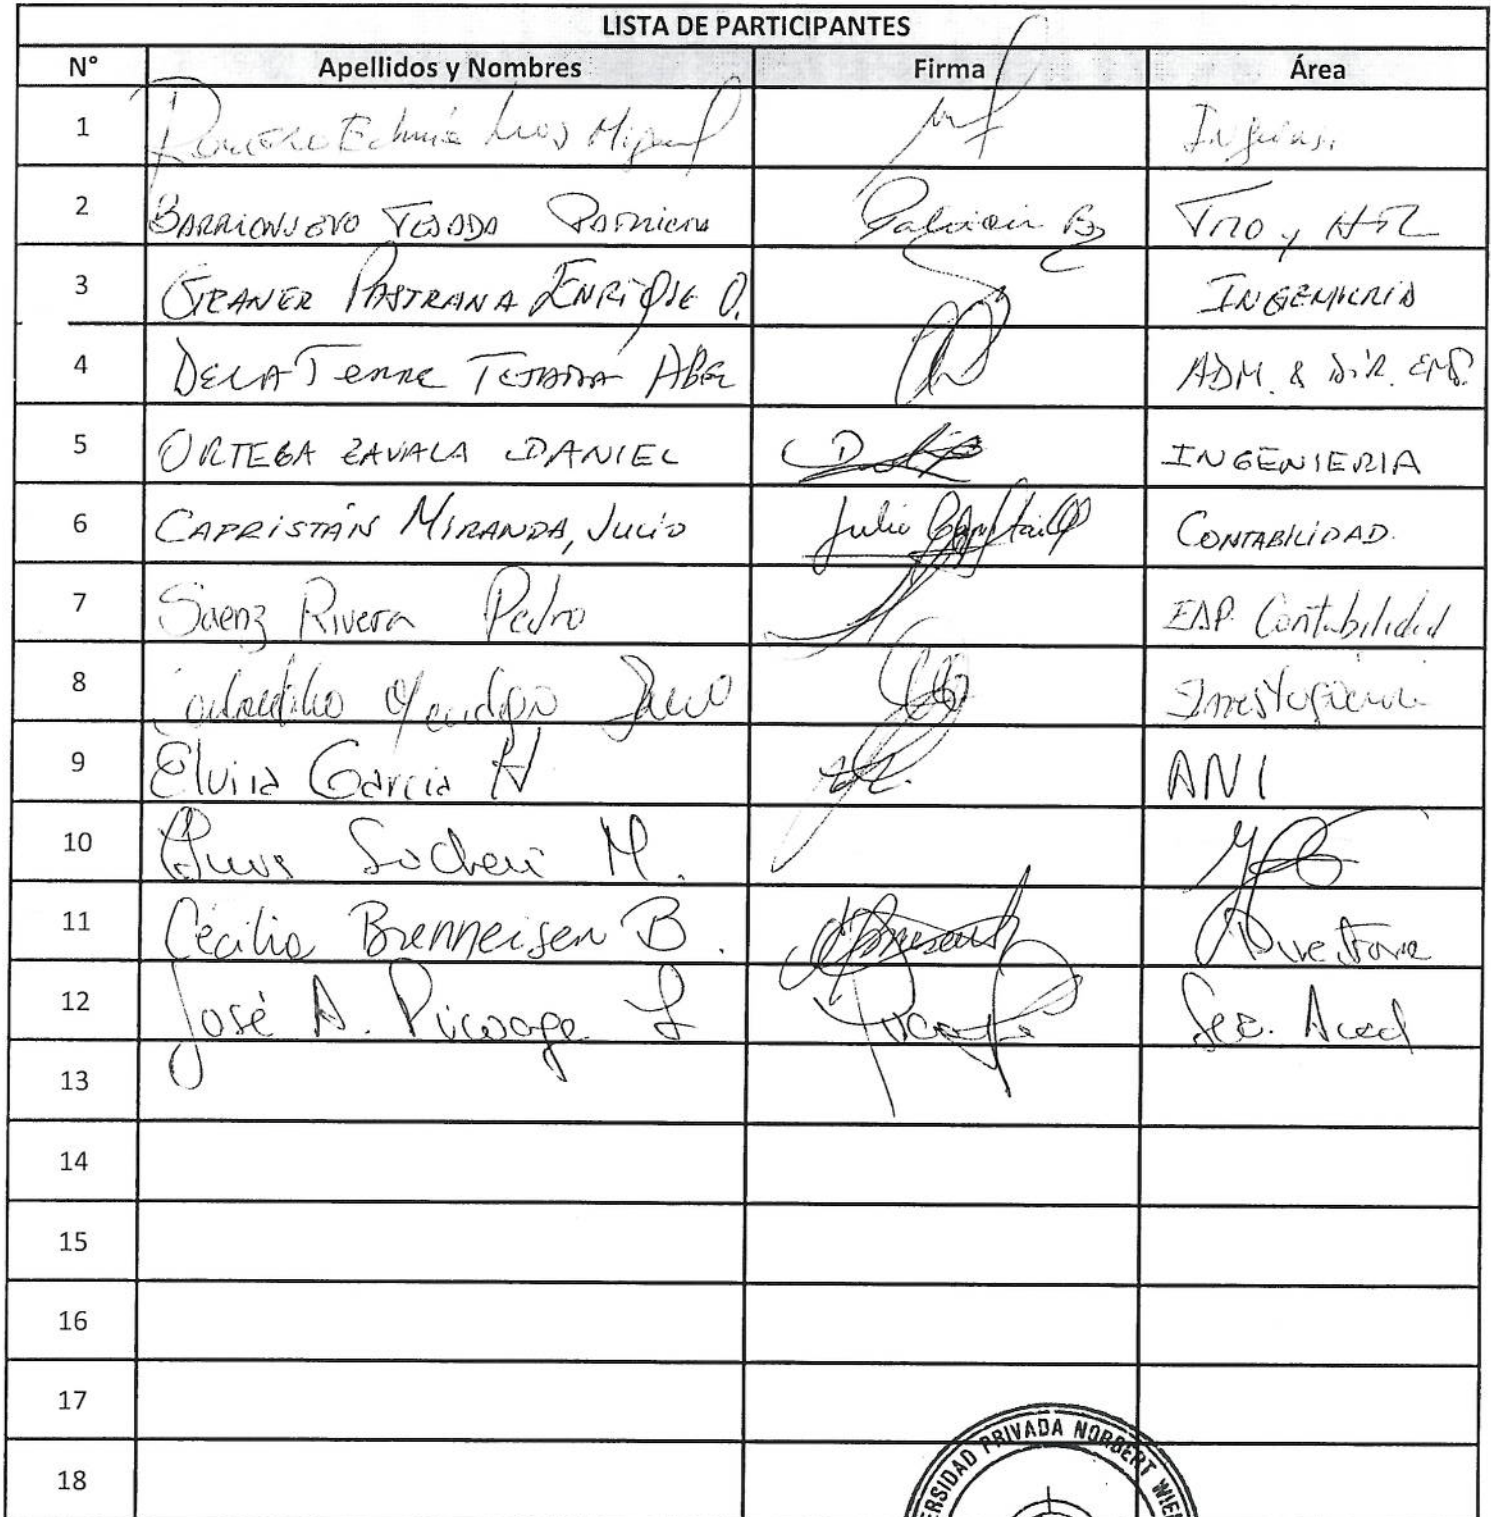 LISTA DE PARTICIPANTES
N° Apellidos y Nombres Firma Área
1 Luis Miguel
2 BARRIONUEVO TEJADA PATRICIA Patricia B TMO y HTL
3 GRANER PASTRANA ENRIQUE O. INGENIERIA
4 DE LA TORRE TEJADA ABEL ADM. & DIR. EMP.
5 ORTEGA ZAVALA DANIEL INGENIERIA
6 CAPRISTÁN MIRANDA, JULIO Julio CONTABILIDAD.
7 Saenz Rivera Pedro EAP. Contabilidad
8 Investigación
9 Elvira García H ANI
10 M.
11 Cecilia Brenneisen B. Directora
12 José A. L Sec. Acad
13
14
15
16
17
18
PRIVADA NORBERT